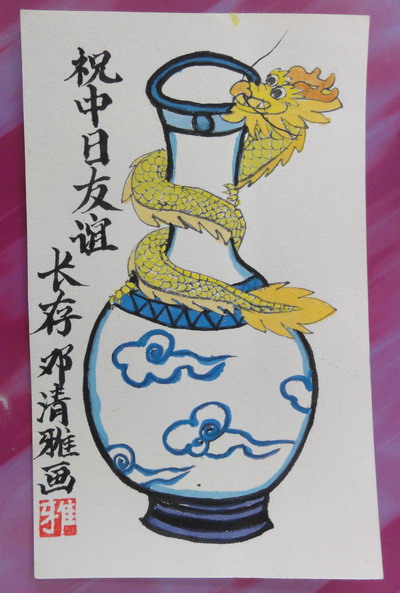 祝中日友谊
长存邓清雅画
雅